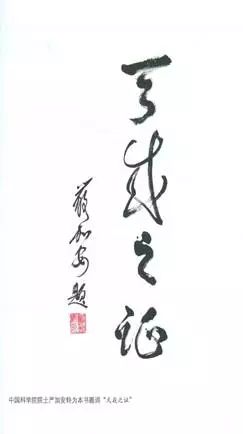 天我之证
严加安 题
中国科学院院士严加安特为本书题词“天我之证”